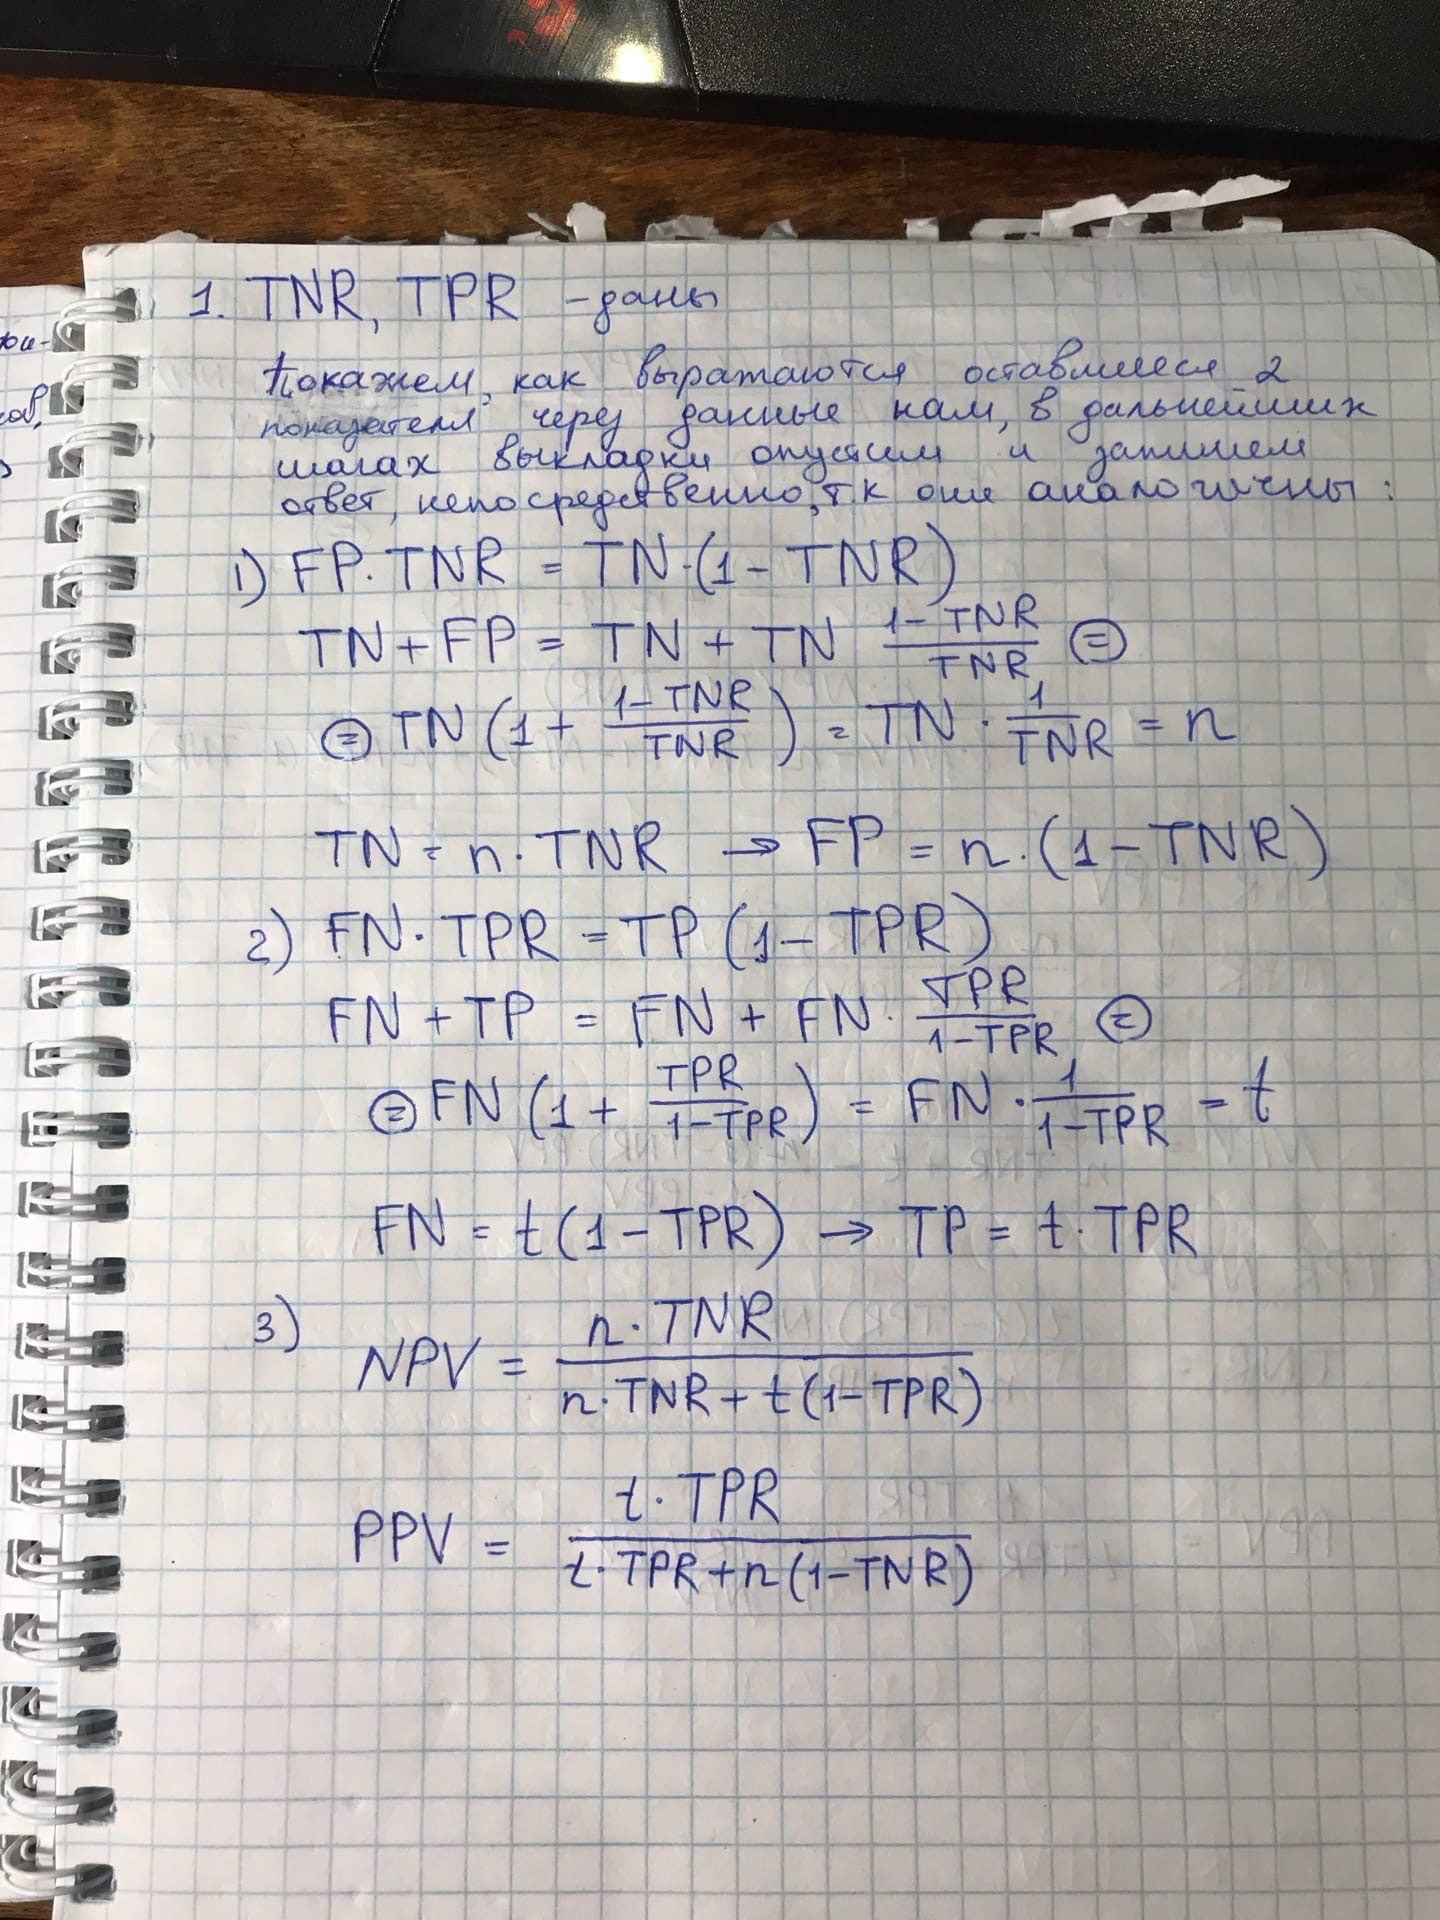 1. TNR, TPR – даны
Покажем, как выражаются оставшиеся 2
показателя через данные нам, в дальнейших
шагах выкладки опустим и запишем
ответ, непосредственно, т.к они аналогичны:
1) FP · TNR = TN · (1 - TNR)
TN + FP = TN + TN \frac{1 - TNR}{TNR} ⊜
⊜ TN (1 + \frac{1 - TNR}{TNR}) = TN · \frac{1}{TNR} = n
TN = n · TNR → FP = n · (1 - TNR)
2) FN · TPR = TP (1 - TPR)
FN + TP = FN + FN · \frac{TPR}{1 - TPR} ⊜
⊜ FN (1 + \frac{TPR}{1 - TPR}) = FN · \frac{1}{1 - TPR} = t
FN = t (1 - TPR) → TP = t · TPR
3) NPV = \frac{n · TNR}{n · TNR + t (1 - TPR)}
PPV = \frac{t · TPR}{t · TPR + n (1 - TNR)}